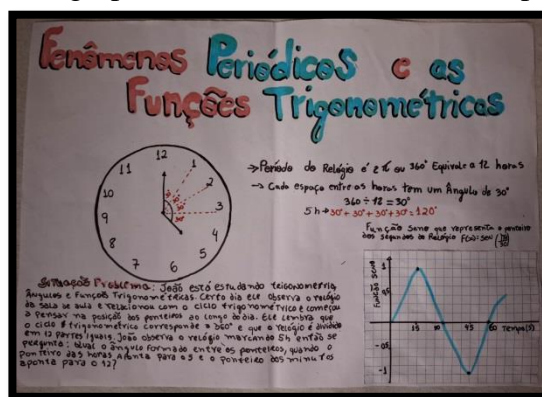 Fenômenos Periódicos e as
Funções Trigonométricas
12
1
2
3
4
5
6
7
8
9
10
11
→ Período do Relógio é 2π ou 360° Equivale a 12 horas
→ Cada espaço entre as horas tem um Ângulo de 30°
360 ÷ 12 = 30°
5h → 30° + 30° + 30° + 30° = 120°
Função Seno que representa o ponteiro
dos segundos do Relógio
Situação Problema: João está estudando
Ângulos e Funções Trigonométricas. Certo dia ele observa o relógio
da sala de aula e relacionou com o ciclo trigonométrico e começou
a pensar na posição dos ponteiros ao longo do dia. Ele lembra que
o ciclo trigonométrico corresponde a 360° e que o relógio é dividido
em 12 partes iguais. João observa o relógio marcando 5h então se
pergunta: Qual o ângulo formado entre os ponteiros, quando o
ponteiro das horas aponta para o 5 e o ponteiro dos minutos
aponta para o 12?
Função seno
1
0,5
0
-0,5
-1
15
30
45
60
Tempo(s)